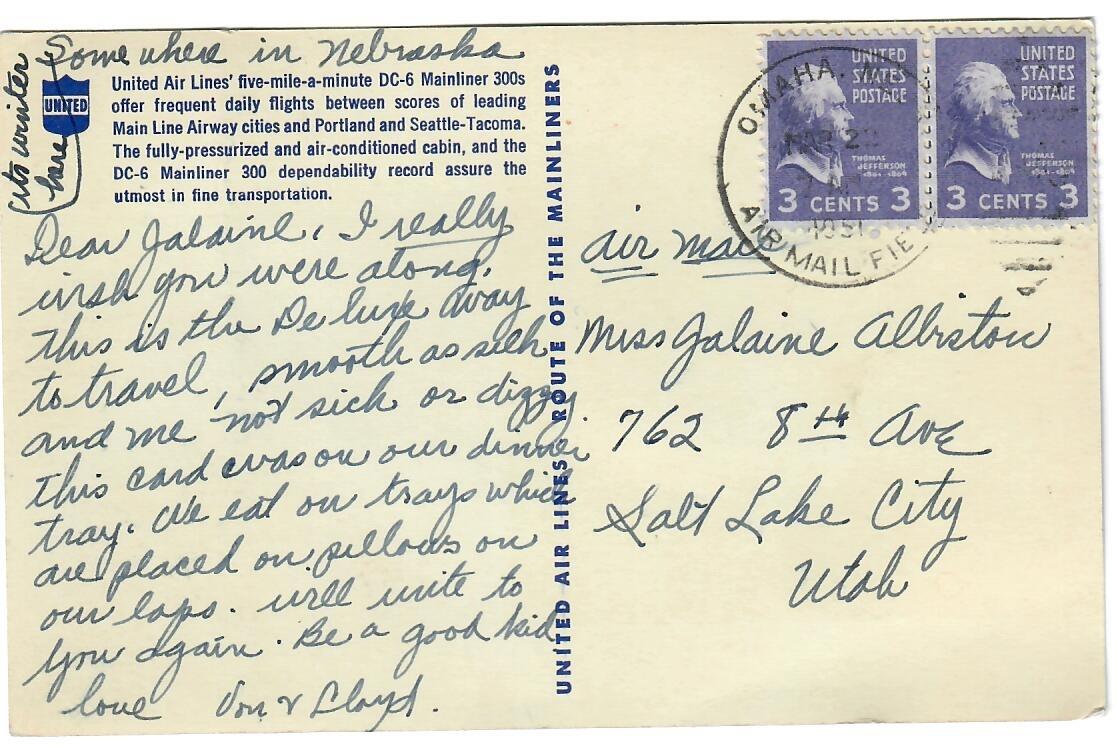 Some where in Nebraska
its winter
here
UNITED
United Air Lines' five-mile-a-minute DC-6 Mainliner 300s
offer frequent daily flights between scores of leading
Main Line Airway cities and Portland and Seattle-Tacoma.
The fully-pressurized and air-conditioned cabin, and the
DC-6 Mainliner 300 dependability record assure the
utmost in fine transportation.
Dear Jalaine, I really
wish you were along.
this is the De luxe away
to travel, smooth as silk
and me not sick or dizzy.
this card was on our dinner
tray. We eat on trays which
are placed on pillows on
our laps. will write to
you again. Be a good kid
love Von & Lloyd.
UNITED AIR LINES ROUTE OF THE MAINLINERS
UNITED
STATES
POSTAGE
THOMAS
JEFFERSON
1801-1809
3 CENTS 3
UNITED
STATES
POSTAGE
THOMAS
JEFFERSON
1801-1809
3 CENTS 3
OMAHA,
MAR 2
1951
AIR MAIL FIE
air mail
Miss Jalaine Albiston
762 8th Ave
Salt Lake City
Utah